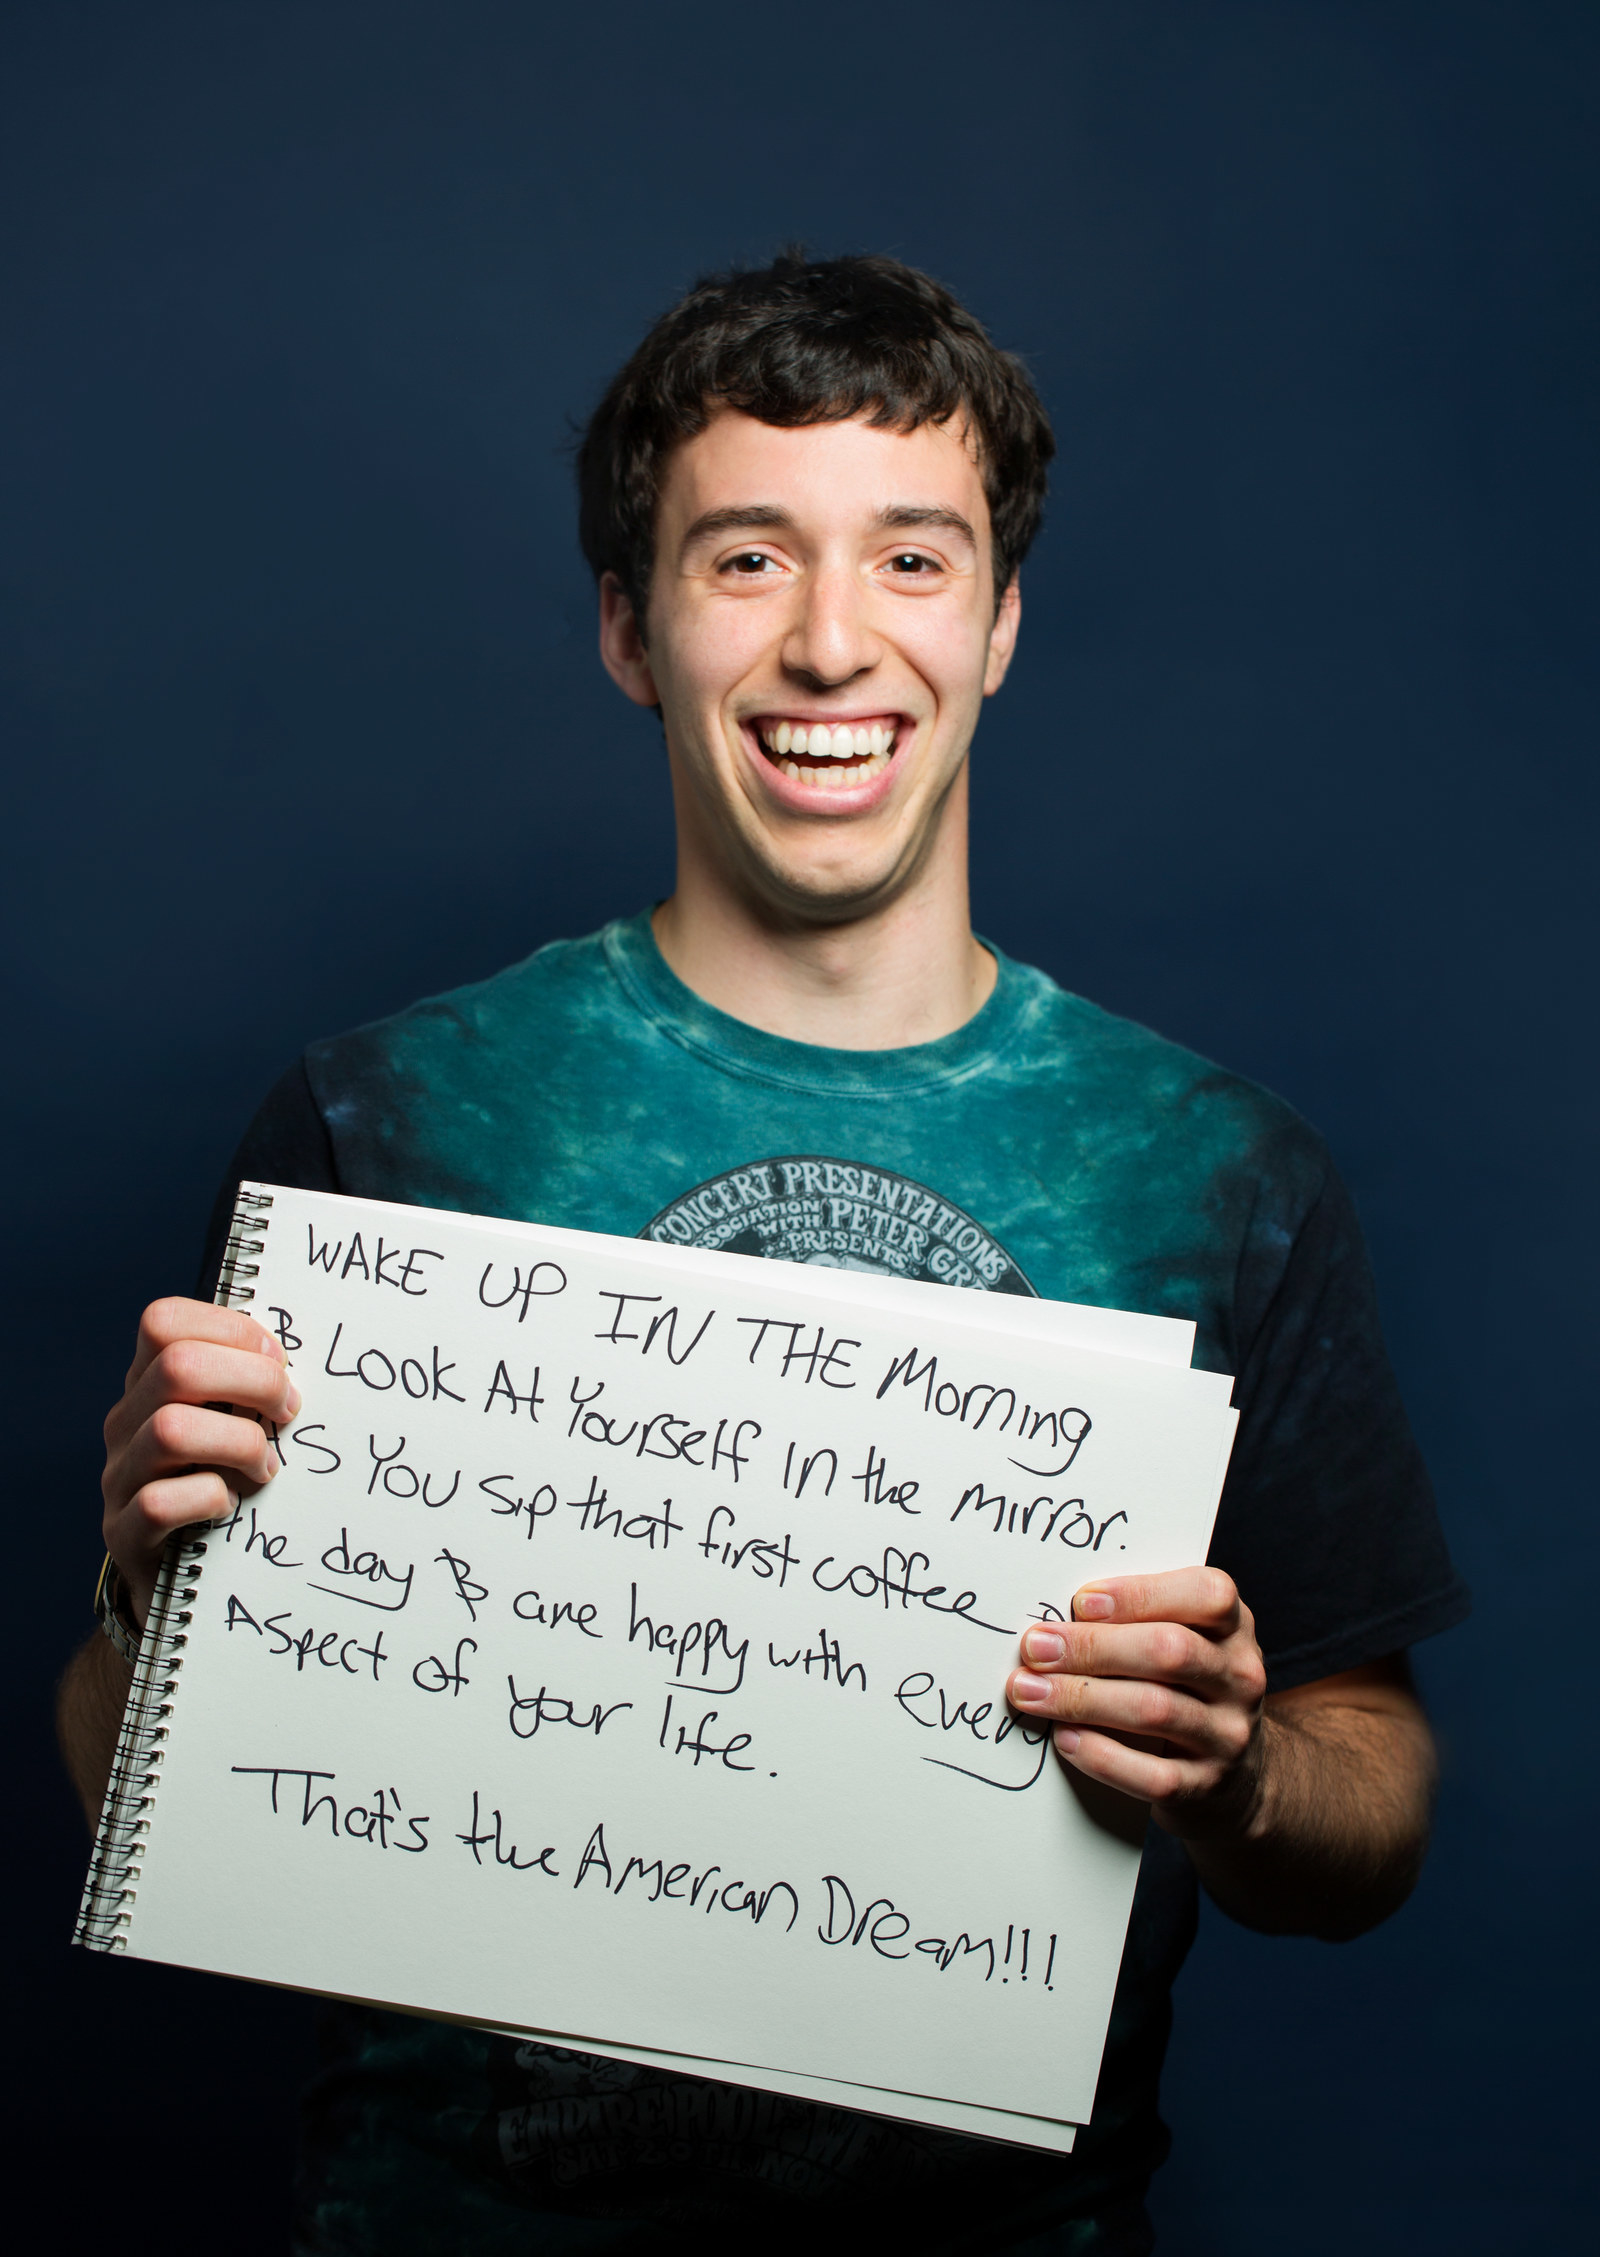 CONCERT PRESENTATIONS
WITH PETER
PRESENTS
WAKE UP IN THE Morning
& Look At Yourself in the mirror.
As You sip that first coffee
the day & are happy with every
Aspect of your life.
That's the American Dream!!!
EMPIRE POOL